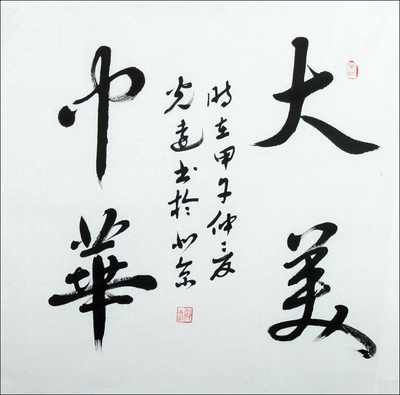 大美
時在甲午仲夏
光達書於北京
中華